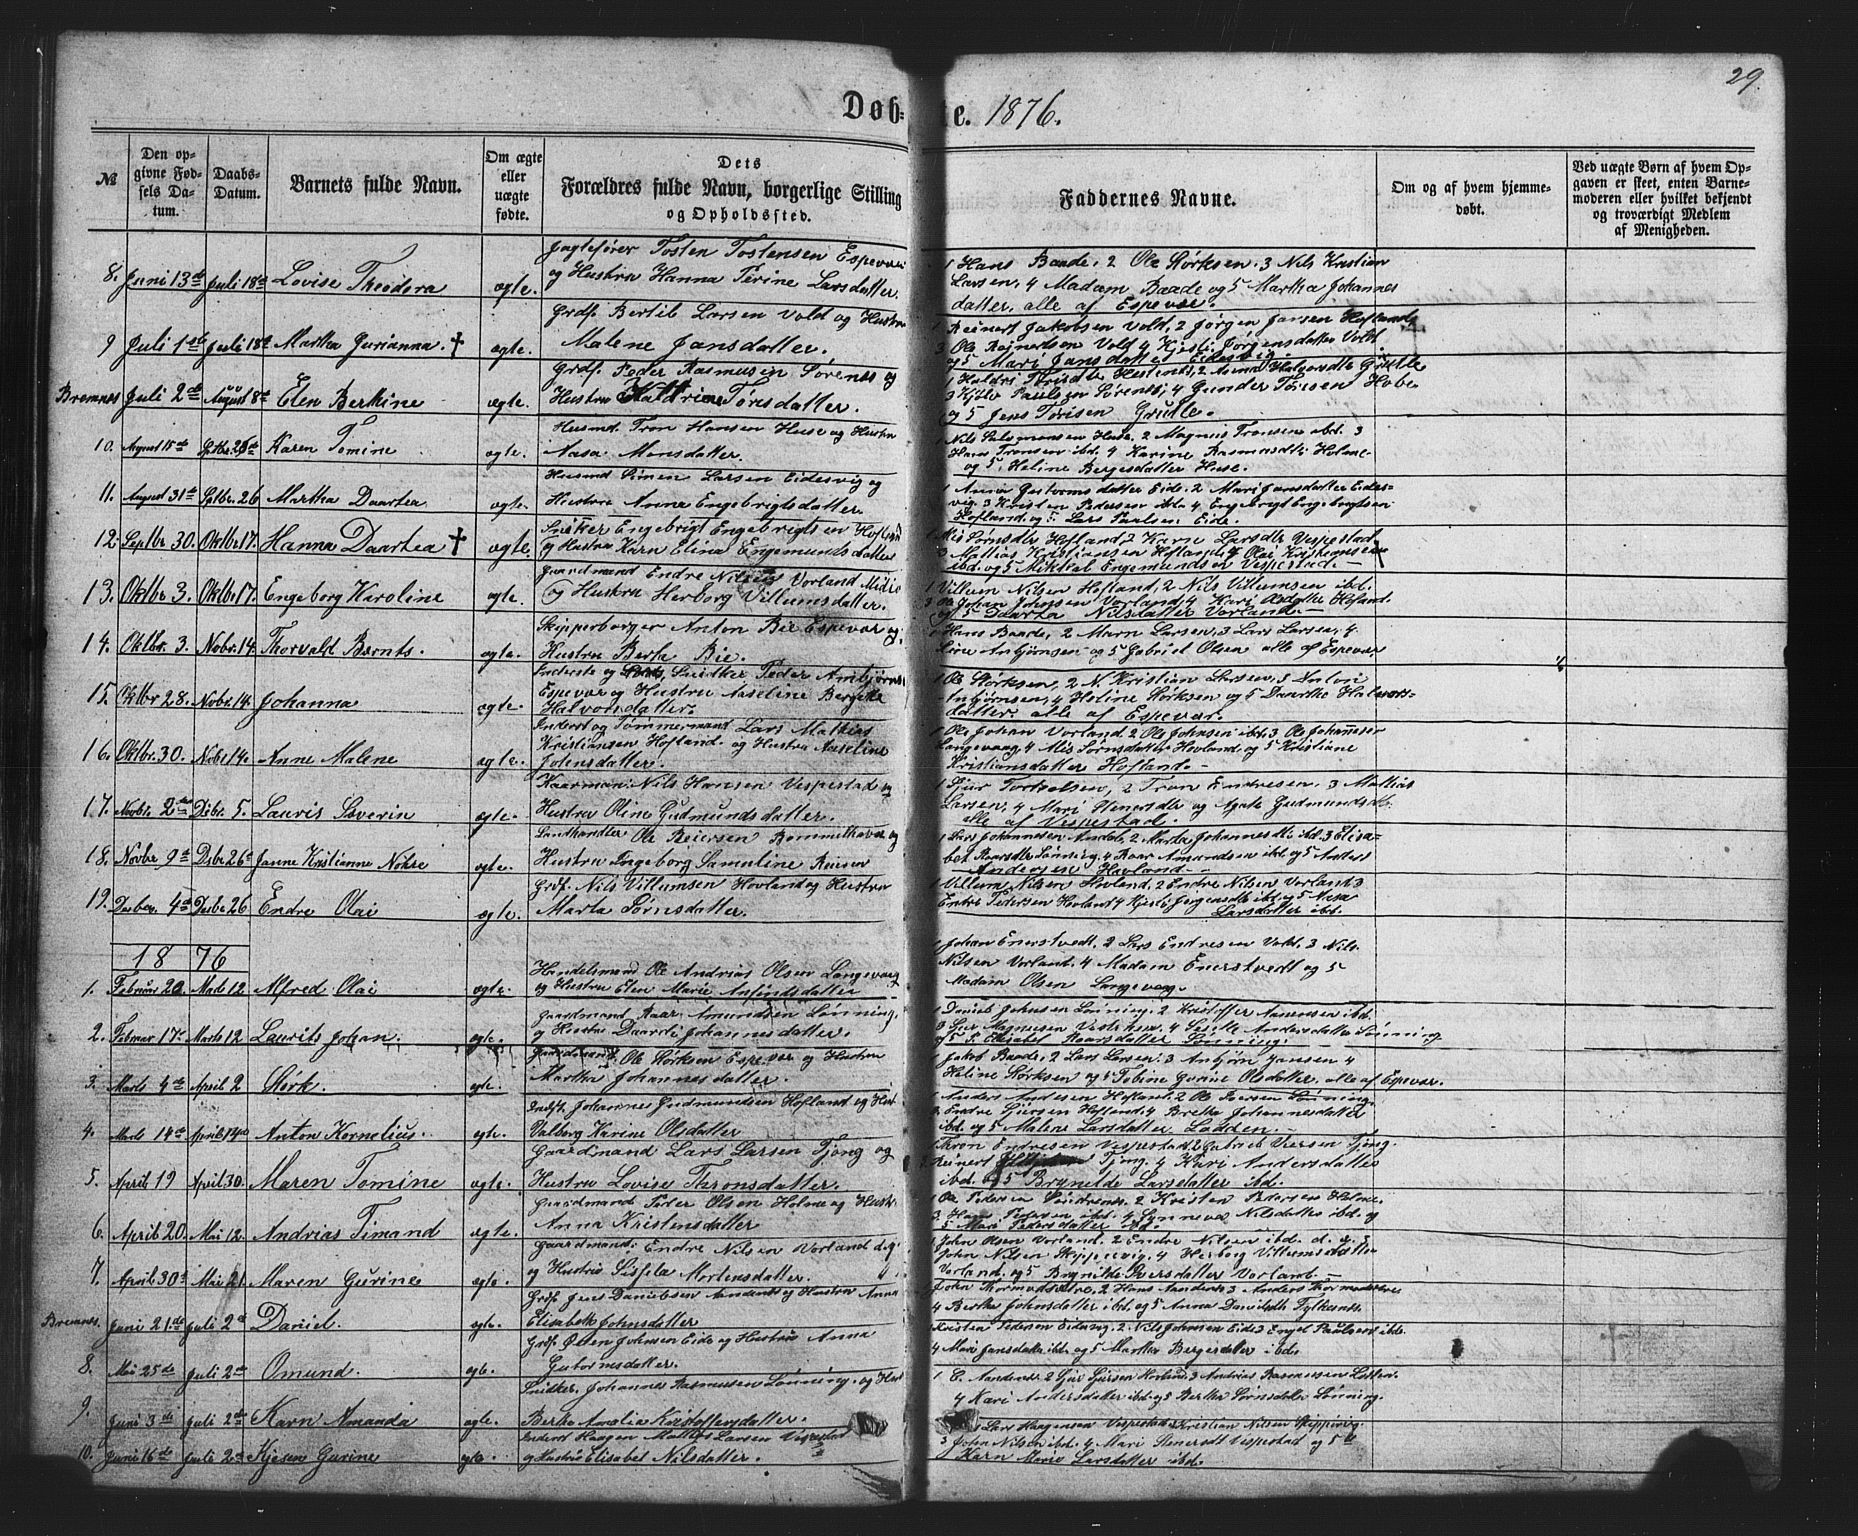 29.
Døbte. 1876.
№
Den opgivne Fødsels Datum.
Daabs-Datum.
Barnets fulde Navn.
Om ægte eller uægte fødte.
Dets Forældres fulde Navn, borgerlige Stilling og Opholdssted.
Faddernes Navne.
Om og af hvem hjemmedøbt.
Ved uægte Børn af hvem Opgaven er skeet, enten Barnemoderen eller hvilket bekjendt og troværdigt Medlem af Menigheden.
8. Juni 13de Juli 18de Lovise Theodora ægte. Jagtefører Tosten Tostensen Espevær
og Hustru Hanna Perine Larsdatter.
1 Hans Baade, 2 Ole Størksen, 3 Nils Kristian
Larsen, 4 Madam Baade og 5 Martha Johannes
datter, alle af Espevær.
9 Juli 1ste Juli 18de Martha Gurianna. † ægte. Grdf. Bertil Larsen Vold og Hustru
Malene Jansdatter.
1 Reinert Jakobsen Vold, 2 Jørgen Jansen Hofland,
3 Ole Reinertsen Vold 4 Kjersti Jørgensdatter Vold
og 5 Mari Jansdatter Eidesvig.
Bremnes Juli 2de August 8de Elen Berthine ægte. Grdf. Peder Rasmusen Sørenes og
Hustru Kathrine Tørisdatter.
og 5 Jens Tørisen Grutle.
10. August 15de Septbr. 26de Karen Tomine ægte. Husmd Tron Hansen Huse og Hustru
Aasa Monsdatter.
1 Nils Salomonsen Huse, 2 Magnus Tronsen ibd. 3
Hans Tronsen ibd. 4 Karine Rasmusdtr Holme
og 5. Heline Bergesdatter Huse.
11. August 31te Septbr. 26 Martha Daartea ægte. Husmd Simen Larsen Eidesvig og
Hustru Anne Engebrigtsdatter.
Hofland og 5. Lars Paulsen Eide.
12 Septbr. 30. Oktbr 17. Hanna Daartea † ægte. Sneker Engebrigt Engebrigtsen Hofland
og Hustru Karn Elina Engemundsdatter
ibd. og 5 Mikkal Engemundsen Vespestad.
13. Oktbr 3. Oktbr. 17. Engeborg Karoline ægte. Gaardmand Endre Nilsen Vorland Midre
og Hustru Herborg Villumsdatter.
1 Villum Nilsen Hofland, 2 Nils Villumsen ibd.
og 5 Daarta Nilsdatter Vorland.
14. Oktbr. 3. Nobr. 14. Thorvald Bernts. ægte. Skipperborger Anton Bie Espevær og
Hustru Berta Bie.
1 Hans Baade, 2 Marn Larsen, 3 Lars Larsen, 4.
Line Anbjønsen og 5 Gabriel Olsen alle af Espevær
15. Oktbr 28. Nobr. 14. Johanna ægte. Peder Anbjørns.
Espevær og Hustru Aaseline Bergitte
Halvorsdatter.
1 Ole Størksen, 2 N. Kristian Larsen, 3 Anton
Anbjørnsen, 4 Heline Størksen og 5 Daarthe Halvors-
datter. alle af Espevær.
16. Oktbr. 30. Nobr 14. Anne Malene ægte. Inderst og Tømmermand Lars Mathias
Kristiansen Hofland. og Hustru Aaseline
Johnsdatter.
1 Ole Johan Vorland, 2 Ole Johnsen ibd. 3 Ole Johannesen
Langevaag 4 Mis Sørnsdatter Hovland og 5 Kristiane
Kristiansdatter Hofland.
17. Novbr. 2den Debr. 5. Lauris Severin ægte. Kaarman: Nils Hansen Vespestad og
Hustru Oline Gudmundsdatter.
1 Sjur Tortelsen, 2 Tron Endresen. 3 Mathias
Larsen, 4 Mari Stenersdtr og Agate Gudmundsdr.
alle af Vespestad.
18. Novbr 9de Dsbr 26de Janne Kristianne Nokse ægte. Landhandler Ole Reiersen Bommelhavn og
Hustru Ingeborg Samuline Reiersen
Andersen Hovland
19. Desbr. 4de Desbr 26 Endre Olai ægte. Grdf. Nils Villumsen Hovland og Hustru
Marta Sørnsdatter.
1 Villum Nilsen Hovland, 2 Endre Nilsen Vorland 3
Larsdatter ibd.
1876
1. Februar 20. Marts 12 Alfred Olai ægte. Handelsmand Ole Andrias Olsen Langevaag
og Hustru Elen Marie Anfindsdatter
1 Johan Enerstvedt, 2 Lars Endresen Vold, 3 Nils
Nilsen Vorland. 4 Madam Enerstvedt og 5
Madam Olsen Langevaag.
2. Februar 17. Marts 12 Laurits Johan. ægte. Gaardmand Roar Amundsen Lønning,
og Hustru Daardi Johannesdatter.
1 Daniel Johnsen Lønning, 2 Kristoffer Aamunsen ibd.
og 5. Elisabet Roarsdatter Lønning.
3. Marts 4de April 2 Størk. ægte. Gaardmand Ole Størksen Espevær og Hustru
Martha Johannesdatter.
1 Jakob Baade, 2 Lars Larsen, 3 Anbjørn Jansen 4
Heline Størksen og 5 Tobine Gurine Olsdatter, alle af Espevær.
4. Marts 14de April 14de Anton Kornelius. ægte. Inderst. Johannes Gudmundsen Hofland og Hust.
Valborg Karine Olsdatter
1 Anders Andersen Hofland, 2 Ole Iversen Lønning,
3 Endre Sjursen Hofland, 4 Bretha Johannesdatter
ibd. og 5 Malene Larsdatter Ladden.
5. April 19 April 30. Maren Tomine ægte. Gaardmand Lars Larsen Tjong og
Hustru Lovise Thronsdatter.
1 Thron Endresen Vespestad, 2 Gabriel Viersen Tjong.
Reinert Tjong. 4 Kari Andersdatter
ibd. og 5 Brynilde Larsdatter ibd.
6. April 20. Mai 12. Andrias Timand ægte. Gaardmand: Peder Olsen Holme og Hustr.
Anna Kristensdatter
1 Ole Pedersen Søndrenes. 2 Kristen Pedersen Holme.
3. Hans Pedersen ibd. 4 Synneva Nilsdatter ibd. og
5 Mari Pedersdatter ibd.
7. April 30te Mai 21. Maren Gurine ægte. Gaardmand: Endre Nilsen Vorland d. y.
og Hustru Sissela Mortensdatter.
1 John Olsen Vorland. 2 Endre Nilsen ibd. d. y. 3
John Nilsen Skippevig, 4 Herborg Villumsdatter
Vorland, og 5 Brynilde Iversdatter Vorland.
Bremnes. Juni 21.de Juli 2de Daniel. ægte. Grdf. Jens Danielsen Andenes og Hustru Anna
Elisabeth Johnsdatter
8. Mai 25de Juli 2de Omund. ægte. Grdf. Østen Johnsen Eide og Hustru Anna
Gutormsdatter.
Kristen Pedersen Eidesvig. 2 Nils Johnsen Eide 3 Engel Paulsen ibd.
4 Mari Jansdatter ibd. og 5 Martha Bergesdatter ibd.
9. Juni 3de Juli 2de Karn Amanda ægte. Snidker, Johannes Rasmusen Lønning. og Hust
Berthe Amalia Kristoffersdatter.
4 Kari Andersdatter ibd. og 5 Berthe Sørnsdatter Lønning.
10. Juni 16de Juli 2de Kjersen Gurine ægte. Inderst Haagen Mathias Larsen Vespestad
og Hustru Elisabet Nilsdatter.
Lars Haagensen Vespestad, 2 Kristian Nilsen Skippevig.
3 John Nilsen ibd. 4 Mari Stenersdt Vespestad og 5
Karn Marie Larsdatter ibd.